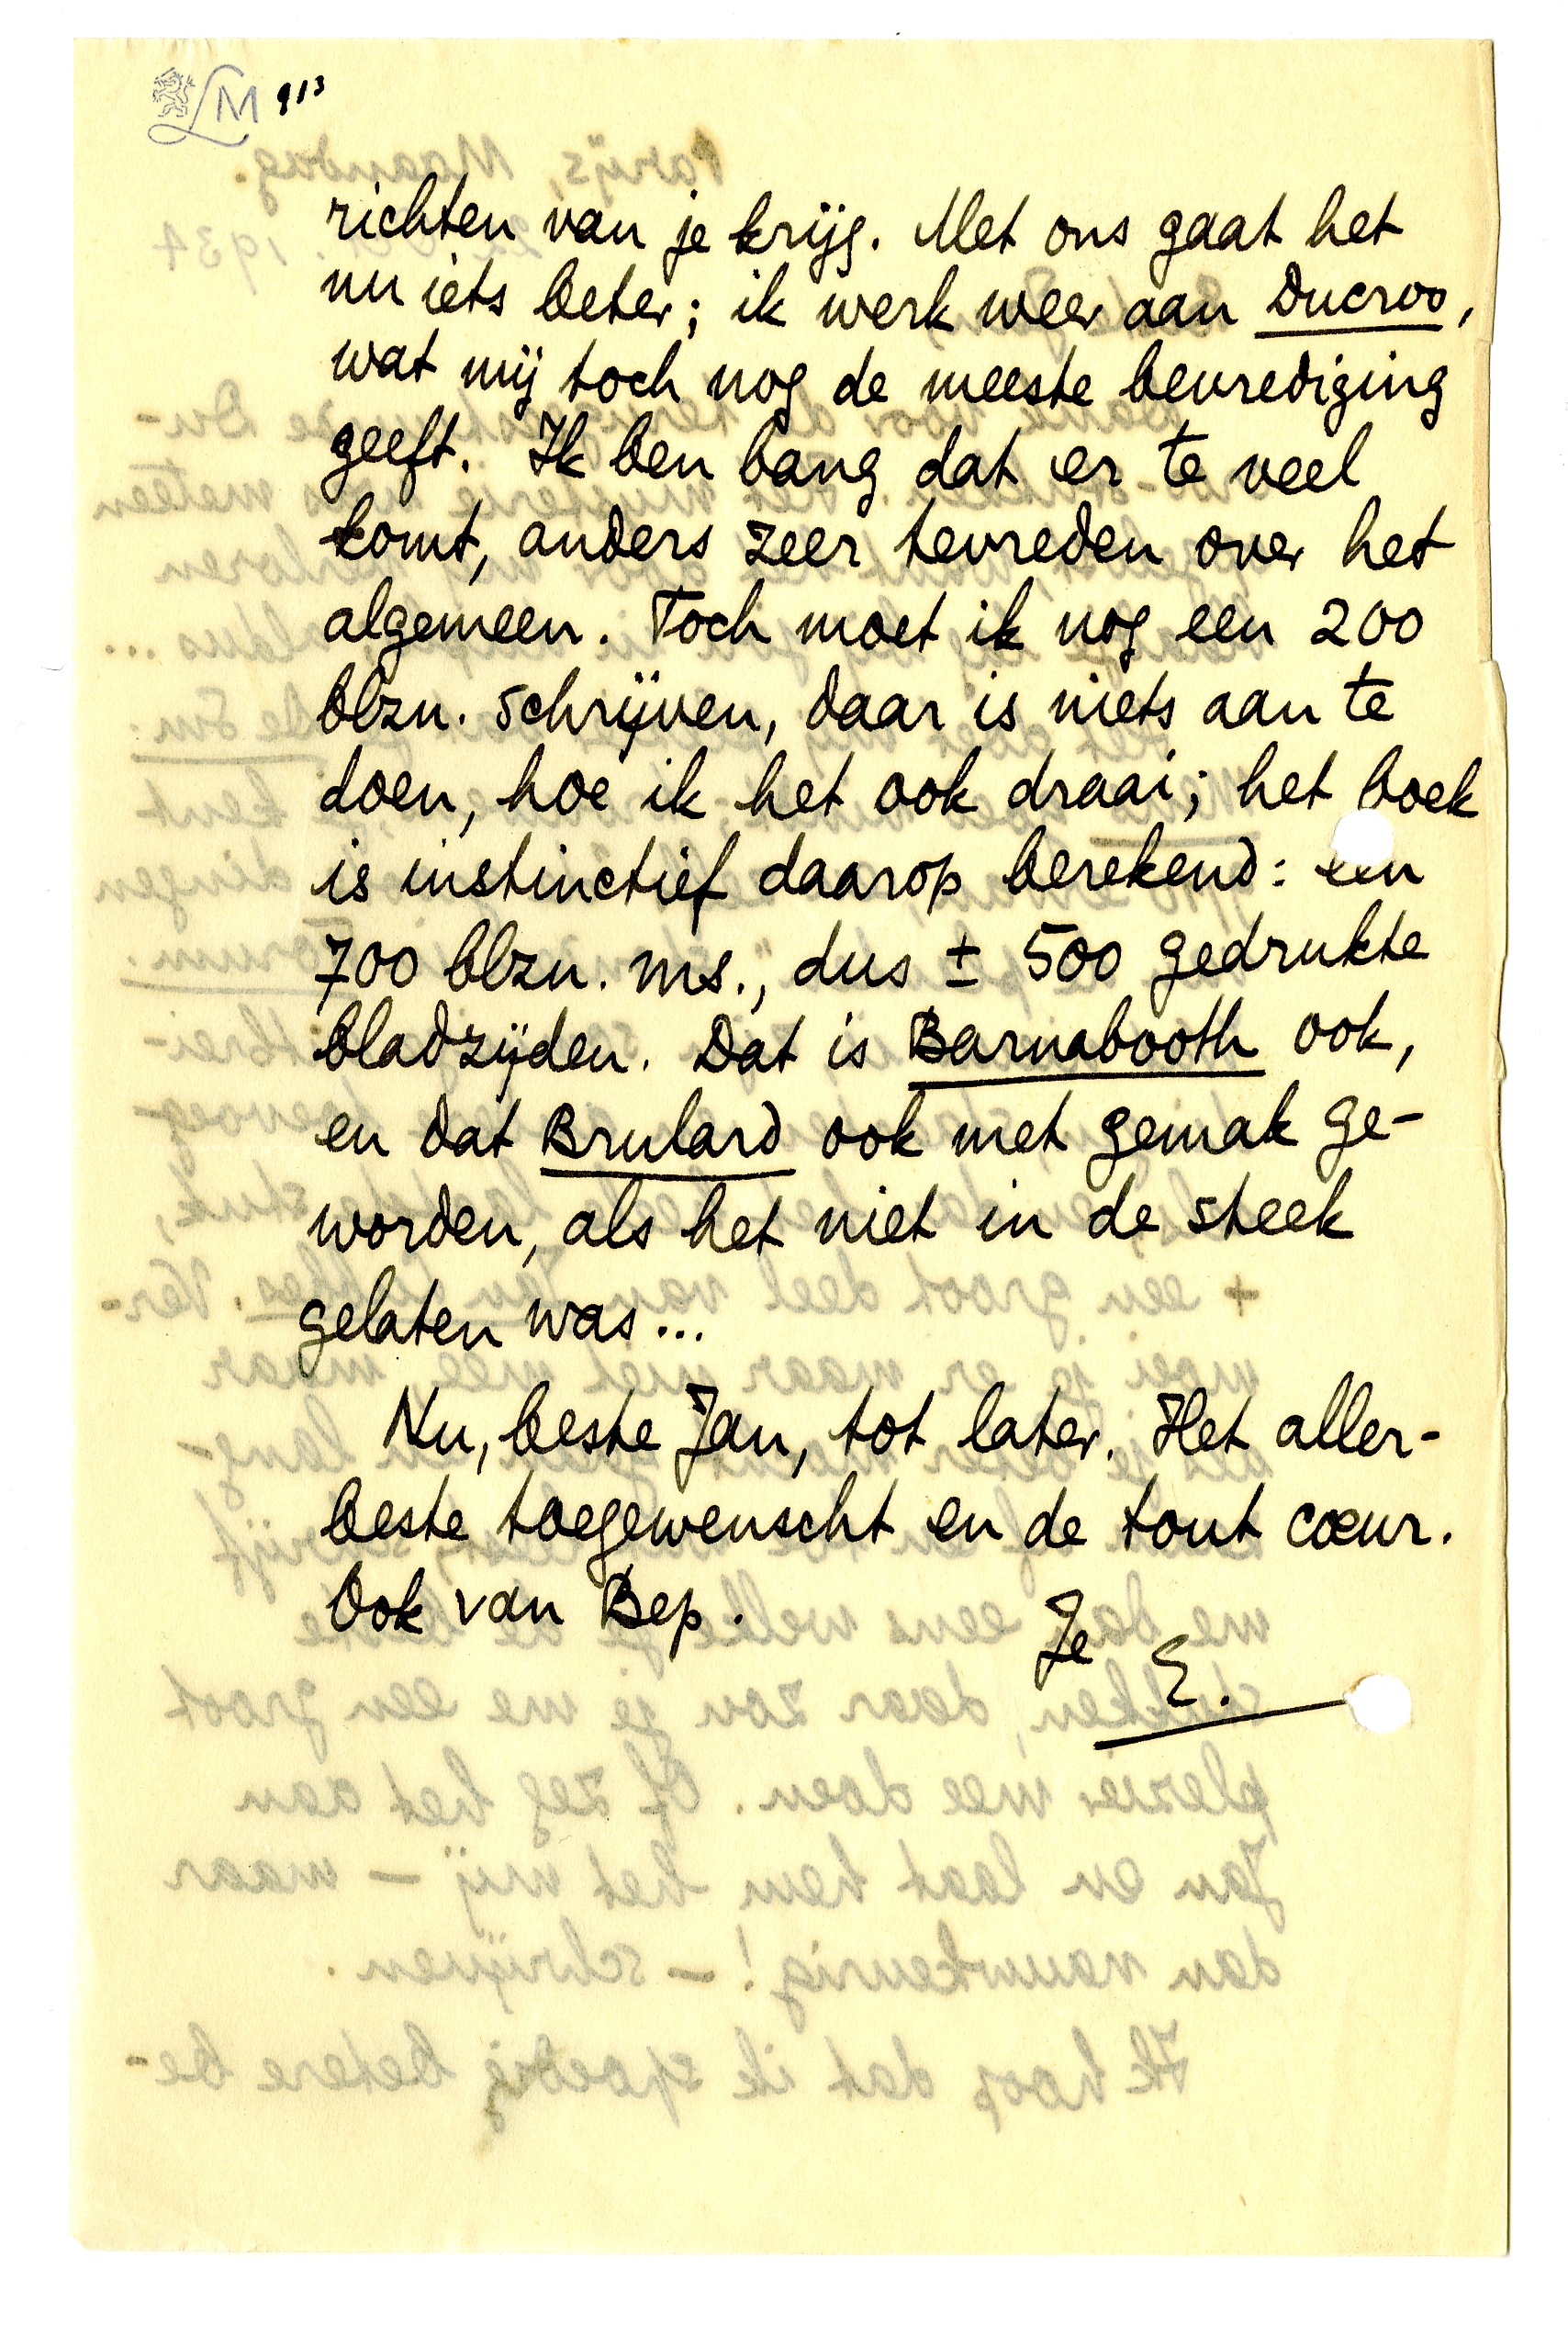 LM 913
richten van je krijg. Met ons gaat het
nu iets beter; ik werk weer aan Ducroo,
wat mij toch nog de meeste bevrediging
geeft. Ik ben bang dat er te veel
komt, anders zeer tevreden over het
algemeen. Toch moet ik nog een 200
blzn. schrijven, daar is niets aan te
doen, hoe ik het ook draai; het boek
is instinctief daarop berekend: een
700 blzn. ms., dus ± 500 gedrukte
bladzijden. Dat is Barnabooth ook,
en dat Brulard ook met gemak ge-
worden, als het niet in de steek
gelaten was...
Nu, beste Jan, tot later. Het aller-
beste toegewenscht en de tout cœur.
Ook van Bep.
Je E.